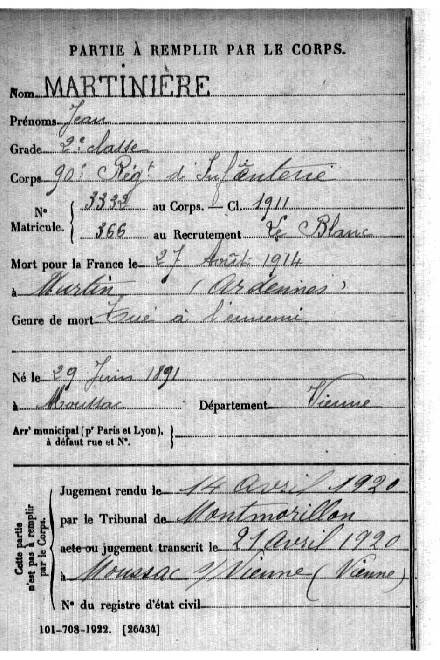 PARTIE À REMPLIR PAR LE CORPS.
Nom MARTINIÈRE
Prénoms Jean
Grade 2e classe
Corps 90e Régt d'Infanterie
N° Matricule. { 3333 au Corps. — Cl. 1911
366 au Recrutement Le Blanc
Mort pour la France le 27 Août 1914
à Murtin (Ardennes)
Genre de mort Tué à l'ennemi
Né le 29 Juin 1891
à Moussac Département Vienne
Arrt municipal (pr Paris et Lyon), à défaut rue et N°. }
Cette partie n'est pas à remplir par le Corps.
Jugement rendu le 14 Avril 1920
par le Tribunal de Montmorillon
acte ou jugement transcrit le 21 avril 1920
à Moussac s/Vienne (Vienne)
N° du registre d'état civil
101-708-1922. [26434]